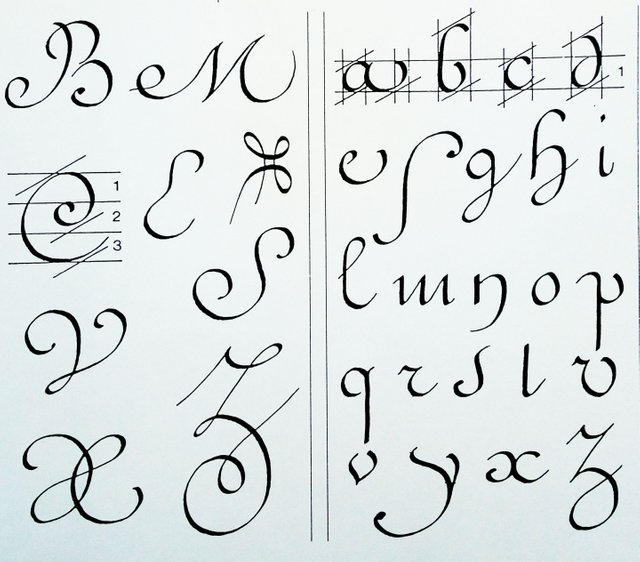 B M
C 1
2
3
S
V
Z
X
a b c d 1
e f g h i
l m n o p
q r s l v
v y x z